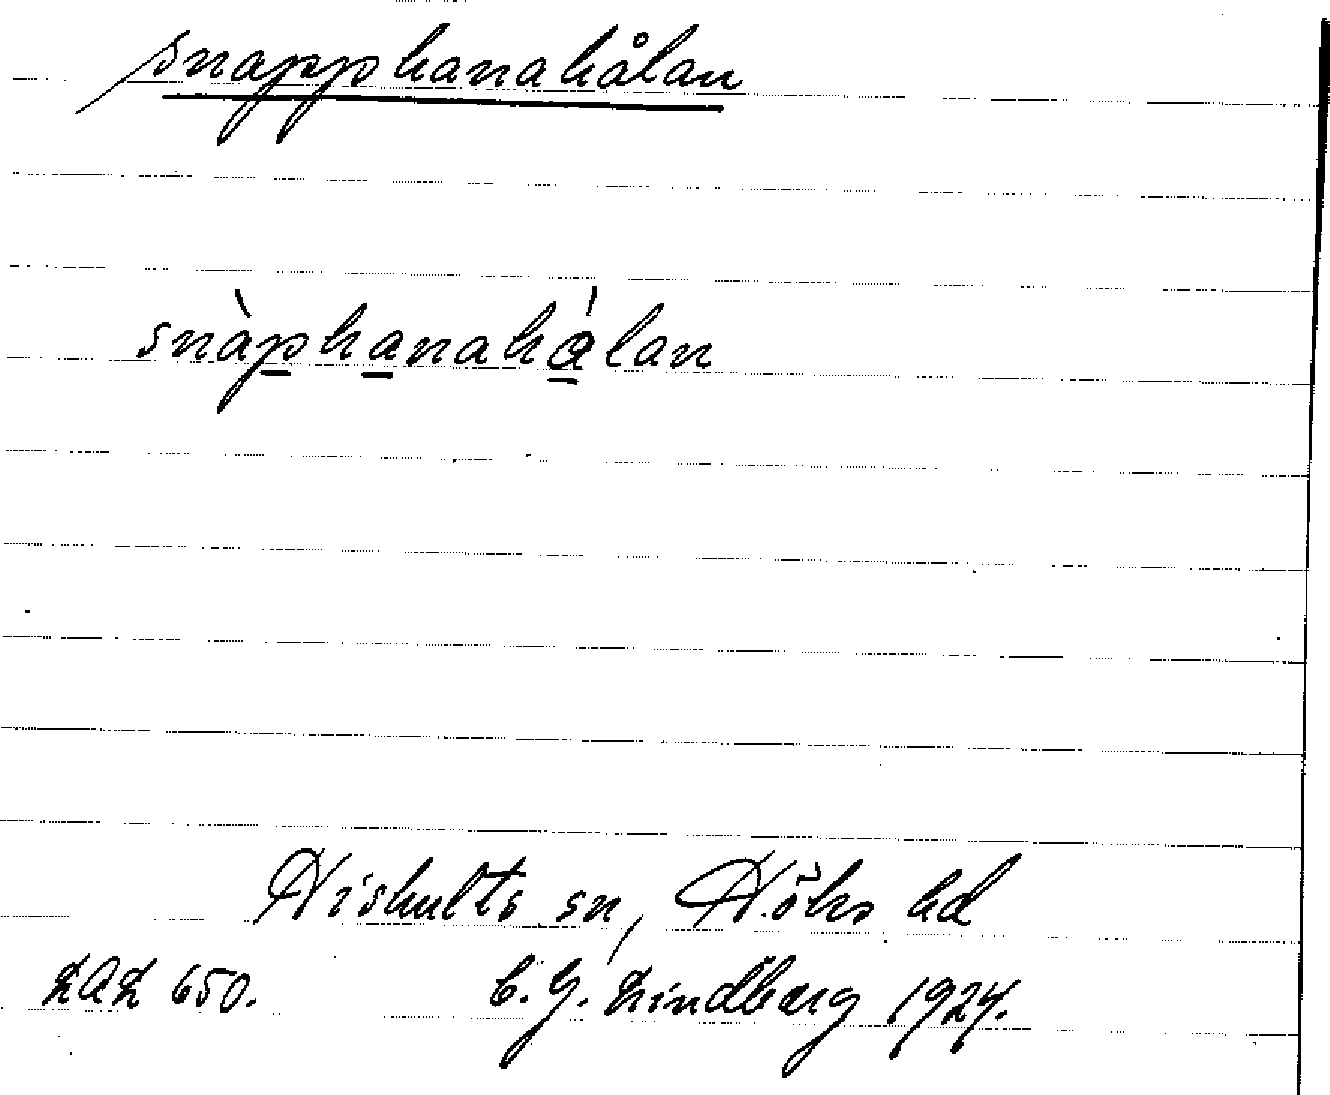 snapphanahålan
snàphanahálan
Hishults sn, Höks hd
LAL 650. C. G. Lindberg 1924.